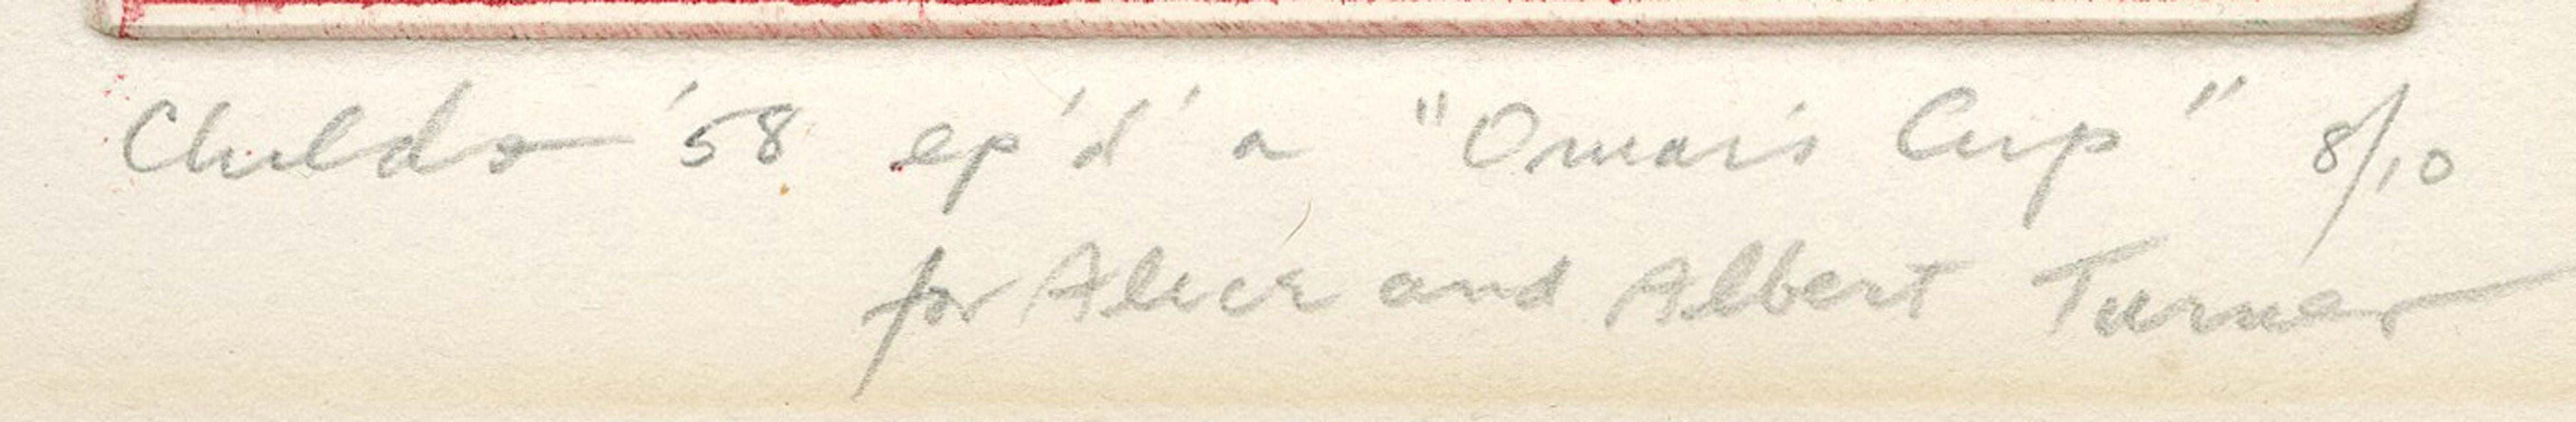 Childs '58 ep'd'a "Omar's Cup" 8/10
for Alice and Albert Turner